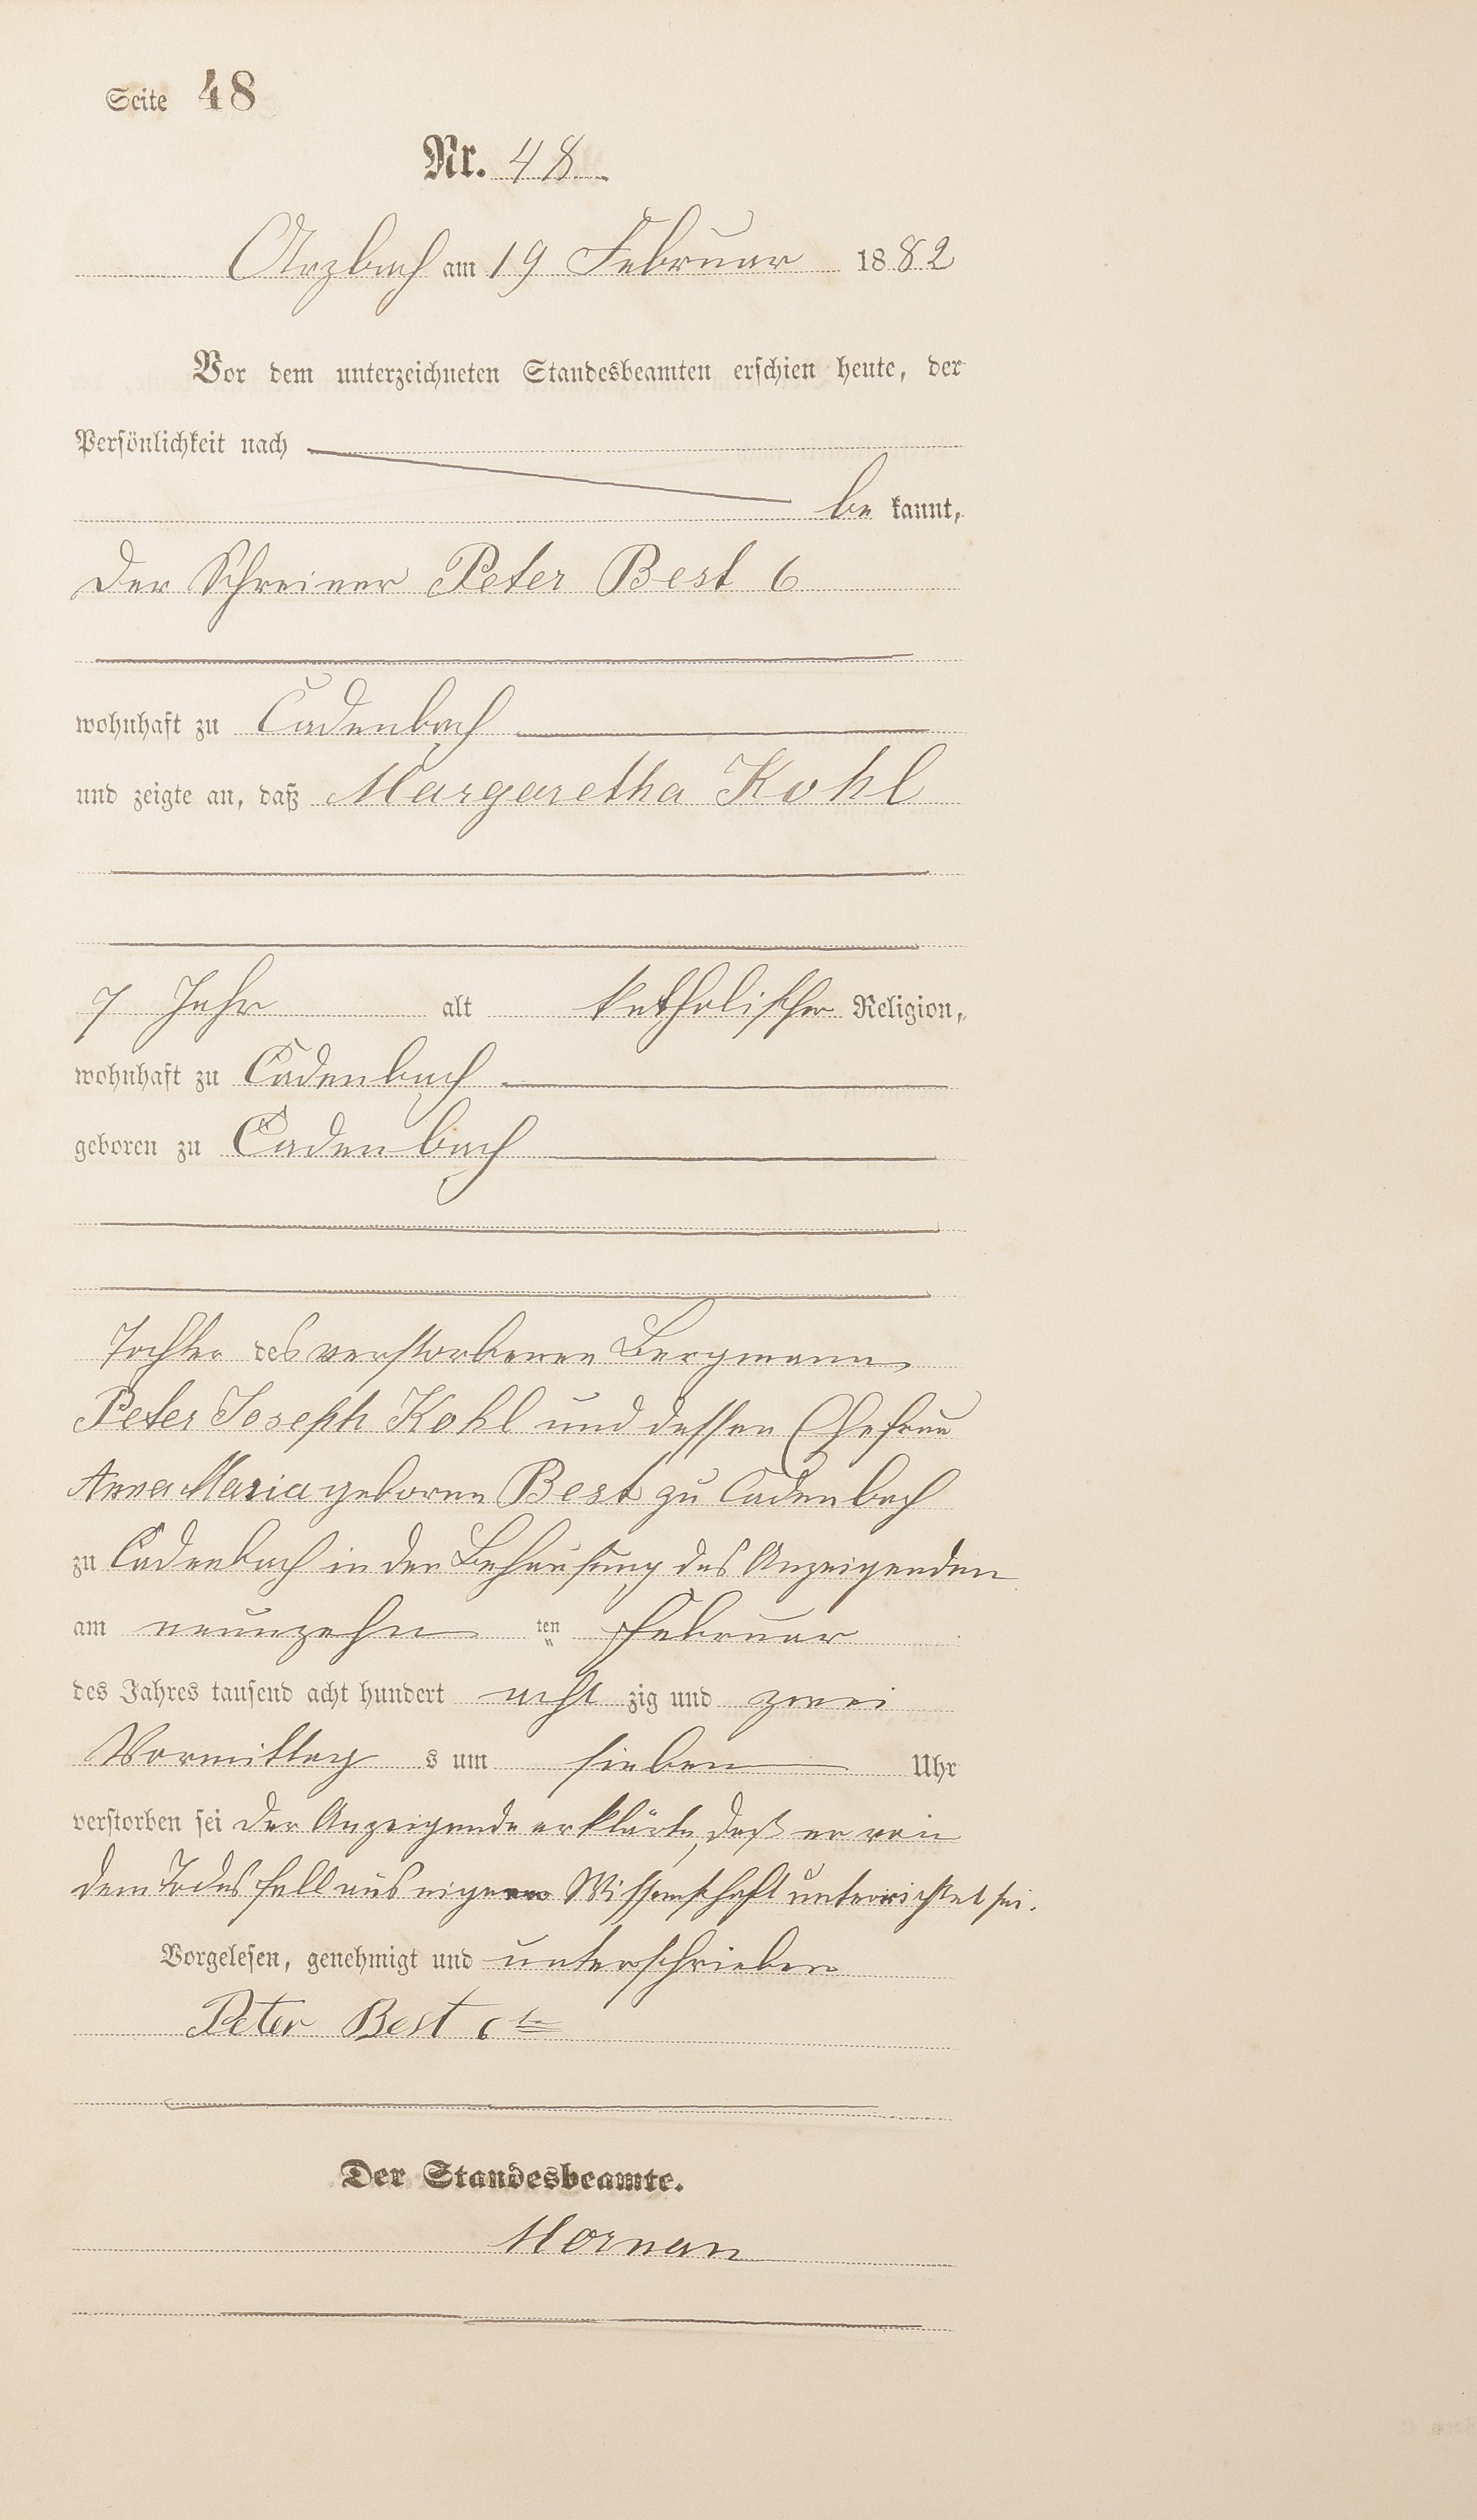 Seite 48
Nr. 48.
Arzbach am 19 Februar 1882
Vor dem unterzeichneten Standesbeamten erschien heute, der
Persönlichkeit nach
be kannt,
der Schreiner Peter Best 6
wohnhaft zu Cadenbach
und zeigte an, daß Margaretha Kohl
7 Jahr alt katholischer Religion,
wohnhaft zu Cadenbach
geboren zu Cadenbach
Tochter des verstorbenen Bergmann
Peter Joseph Kohl und dessen Ehefrau
Anna Maria geborne Best zu Cadenbach
zu Cadenbach in der Behausung des Anzeigenden
am neunzehn ten Februar
des Jahres tausend acht hundert acht zig und zwei
Vormittag s um sieben Uhr
verstorben sei der Anzeigende erklärte, daß er von
dem Todesfall aus eigener Wissenschaft unterrichtet sei.
Vorgelesen, genehmigt und unterschrieben
Peter Best 6te
Der Standesbeamte.